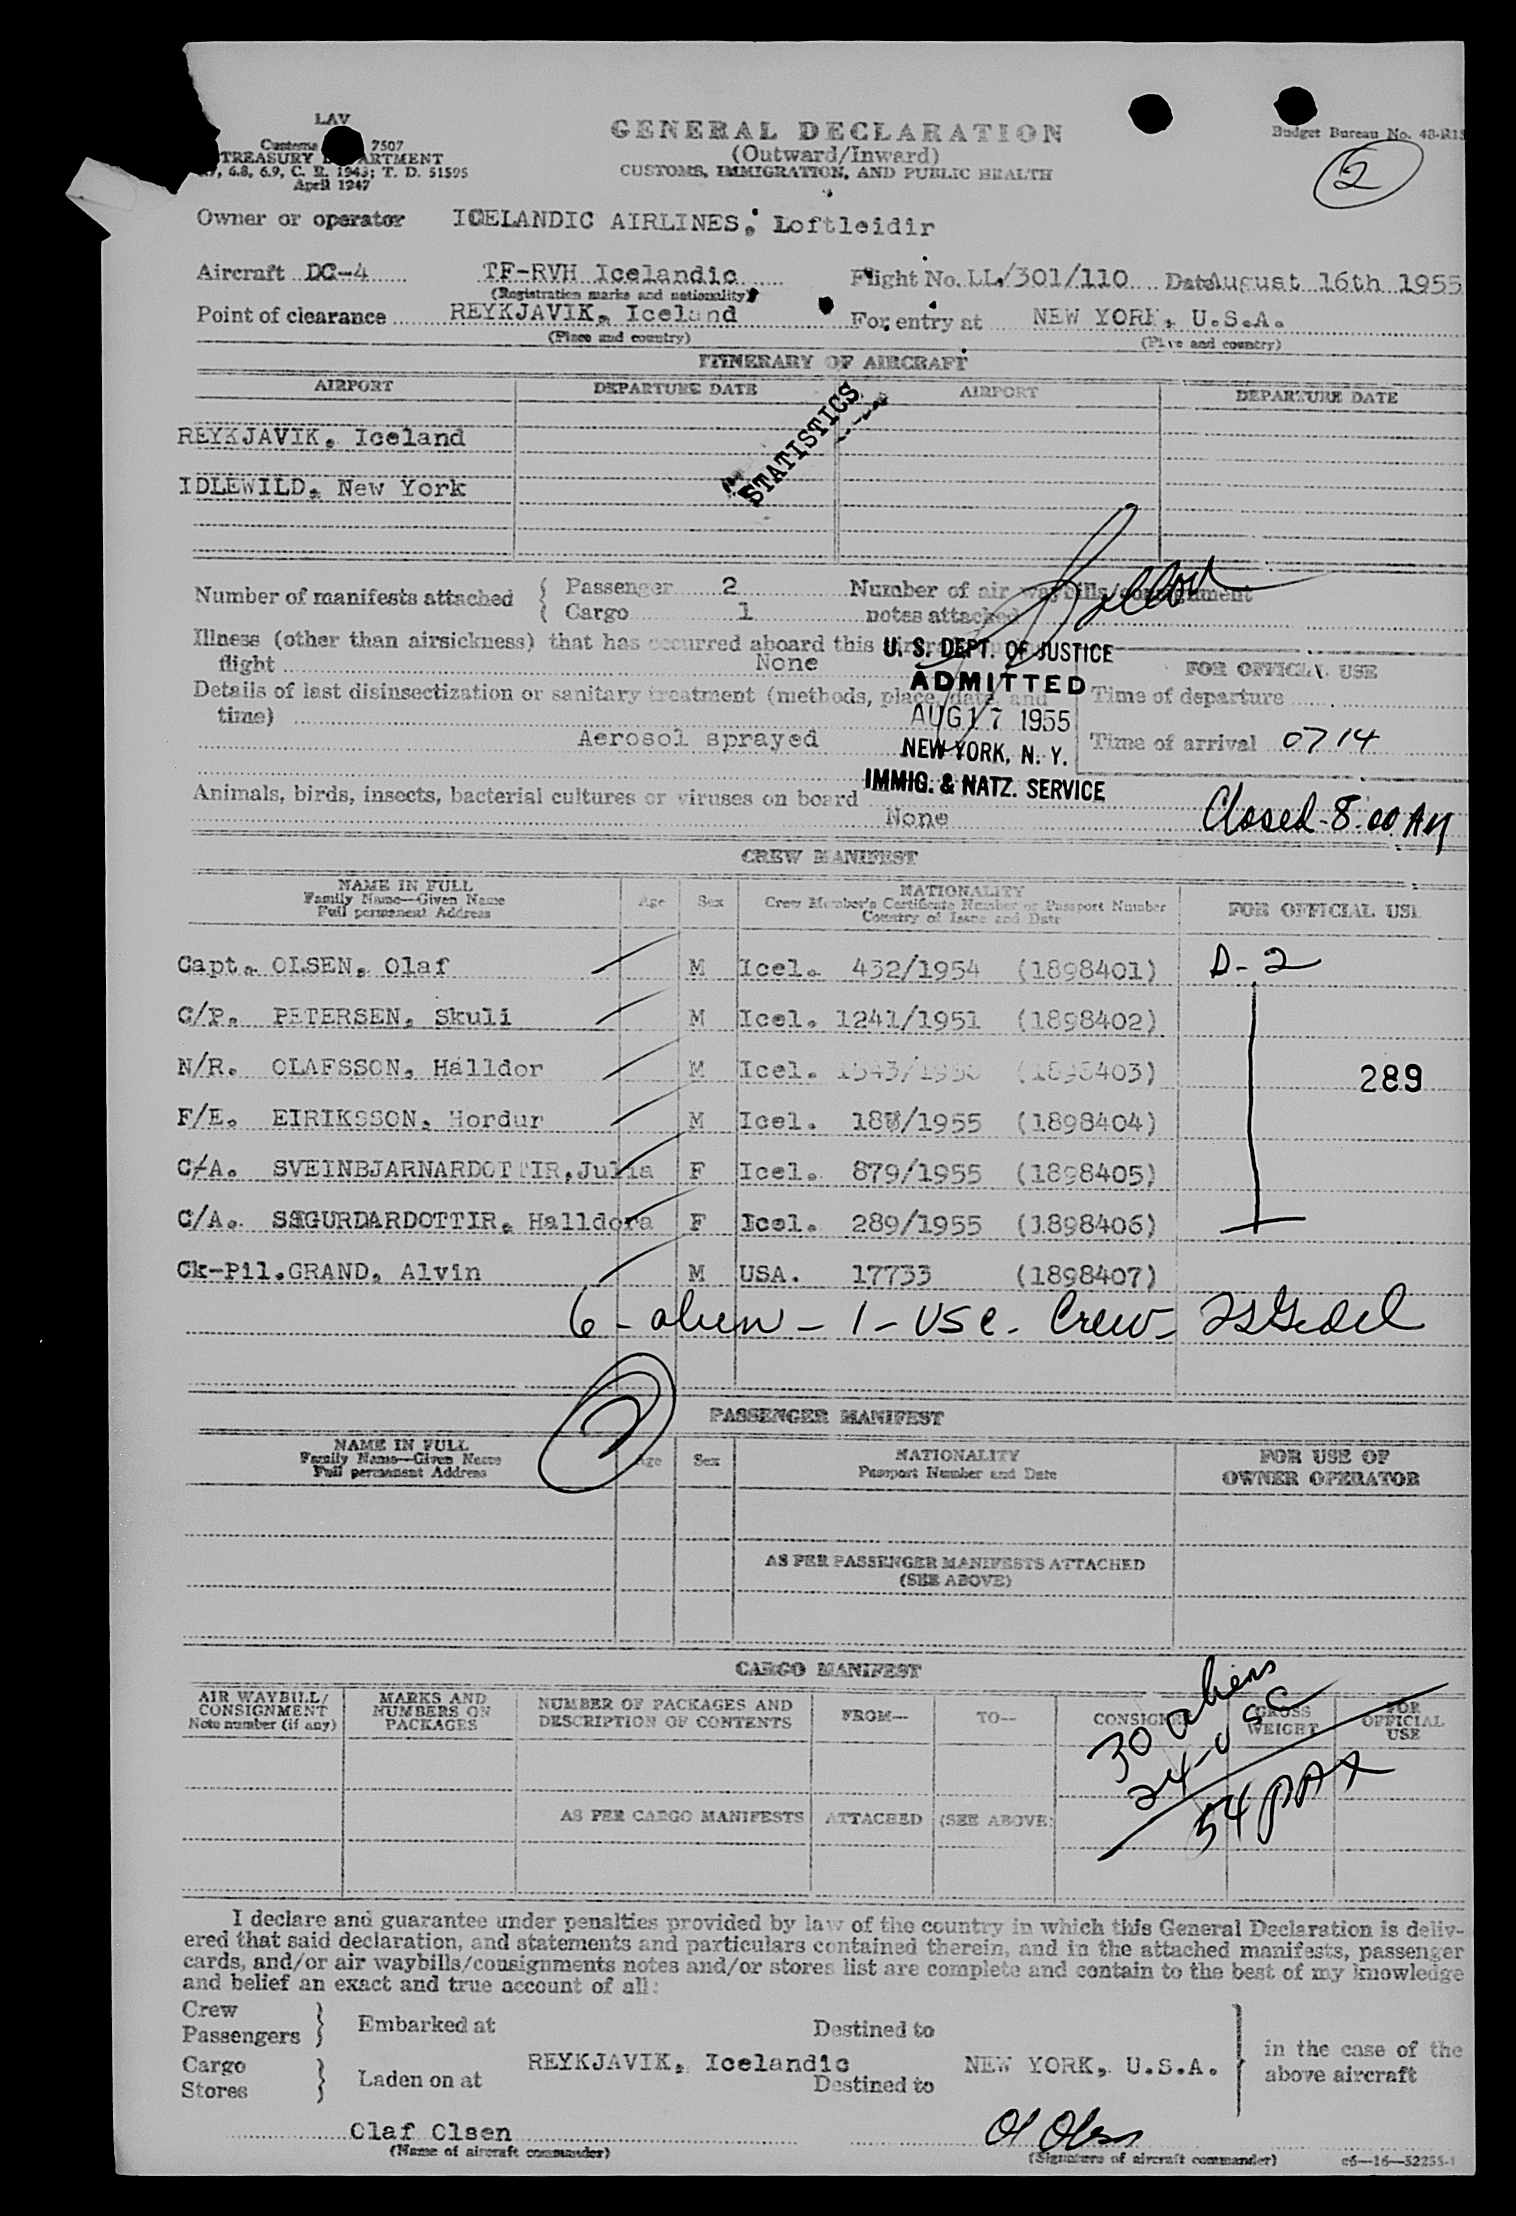 LAV
GENERAL DECLARATION
Budget Bureau No. 48-R15
Customs 7507
(Outward/Inward)
TREASURY DEPARTMENT
CUSTOMS, IMMIGRATION, AND PUBLIC HEALTH
6.8, 6.9, C. R. 1943; T. D. 51595
April 1947
2
Owner or operator ICELANDIC AIRLINES, Loftleidir
Aircraft DC-4 TF-RVH Icelandic Flight No. LL/301/110 Date August 16th 1955
(Registration marks and nationality)
Point of clearance REYKJAVIK, Iceland For entry at NEW YORK, U.S.A.
(Place and country) (Place and country)
ITINERARY OF AIRCRAFT
AIRPORT DEPARTURE DATE AIRPORT DEPARTURE DATE
STATISTICS
REYKJAVIK, Iceland
IDLEWILD, New York
Number of manifests attached { Passenger 2 Number of air waybills/consignment
{ Cargo 1 notes attached
Illness (other than airsickness) that has occurred aboard this
flight None
U. S. DEPT. OF JUSTICE
ADMITTED
AUG 17 1955
NEW YORK, N. Y.
IMMIG. & NATZ. SERVICE
FOR OFFICIAL USE
Details of last disinsectization or sanitary treatment (methods, place, date, and
time)
Time of departure
Aerosol sprayed
Time of arrival 0714
Animals, birds, insects, bacterial cultures or viruses on board
None
Closed - 8:00 AM
CREW MANIFEST
NAME IN FULL
Family Name—Given Name
Full permanent Address
Age
Sex
NATIONALITY
Crew Member's Certificate Number or Passport Number
Country of Issue and Date
FOR OFFICIAL USE
Capt. OLSEN, Olaf M Icel. 432/1954 (1898401) D-2
C/P. PETERSEN, Skuli M Icel. 1241/1951 (1898402)
N/R. OLAFSSON, Halldor M Icel. (1898403) 289
F/E. EIRIKSSON, Hordur M Icel. /1955 (1898404)
C/A. SVEINBJARNARDOTTIR, Julia F Icel. 879/1955 (1898405)
C/A. SIGURDARDOTTIR, Halldora F Icel. 289/1955 (1898406)
Ck-Pil. GRAND, Alvin M USA. 17733 (1898407)
6 - alien - 1 - USC - Crew -
7
PASSENGER MANIFEST
NAME IN FULL
Family Name—Given Name
Full permanent Address
Age
Sex
NATIONALITY
Passport Number and Date
FOR USE OF
OWNER OPERATOR
AS PER PASSENGER MANIFESTS ATTACHED
(SEE ABOVE)
CARGO MANIFEST
AIR WAYBILL/
CONSIGNMENT
Note number (if any)
MARKS AND
NUMBERS ON
PACKAGES
NUMBER OF PACKAGES AND
DESCRIPTION OF CONTENTS
FROM—
TO—
CONSIGNEE
GROSS
WEIGHT
FOR
OFFICIAL
USE
30 aliens
24 - USC
54 PAX
AS PER CARGO MANIFESTS ATTACHED (SEE ABOVE)
I declare and guarantee under penalties provided by law of the country in which this General Declaration is deliv-
ered that said declaration, and statements and particulars contained therein, and in the attached manifests, passenger
cards, and/or air waybills/consignments notes and/or stores list are complete and contain to the best of my knowledge
and belief an exact and true account of all:
Crew
Passengers } Embarked at Destined to
REYKJAVIK, Icelandic NEW YORK, U.S.A.
in the case of the
above aircraft
Cargo
Stores } Laden on at Destined to
Olaf Olsen Ol Olsen
(Name of aircraft commander) (Signature of aircraft commander) c6—16—52255-1